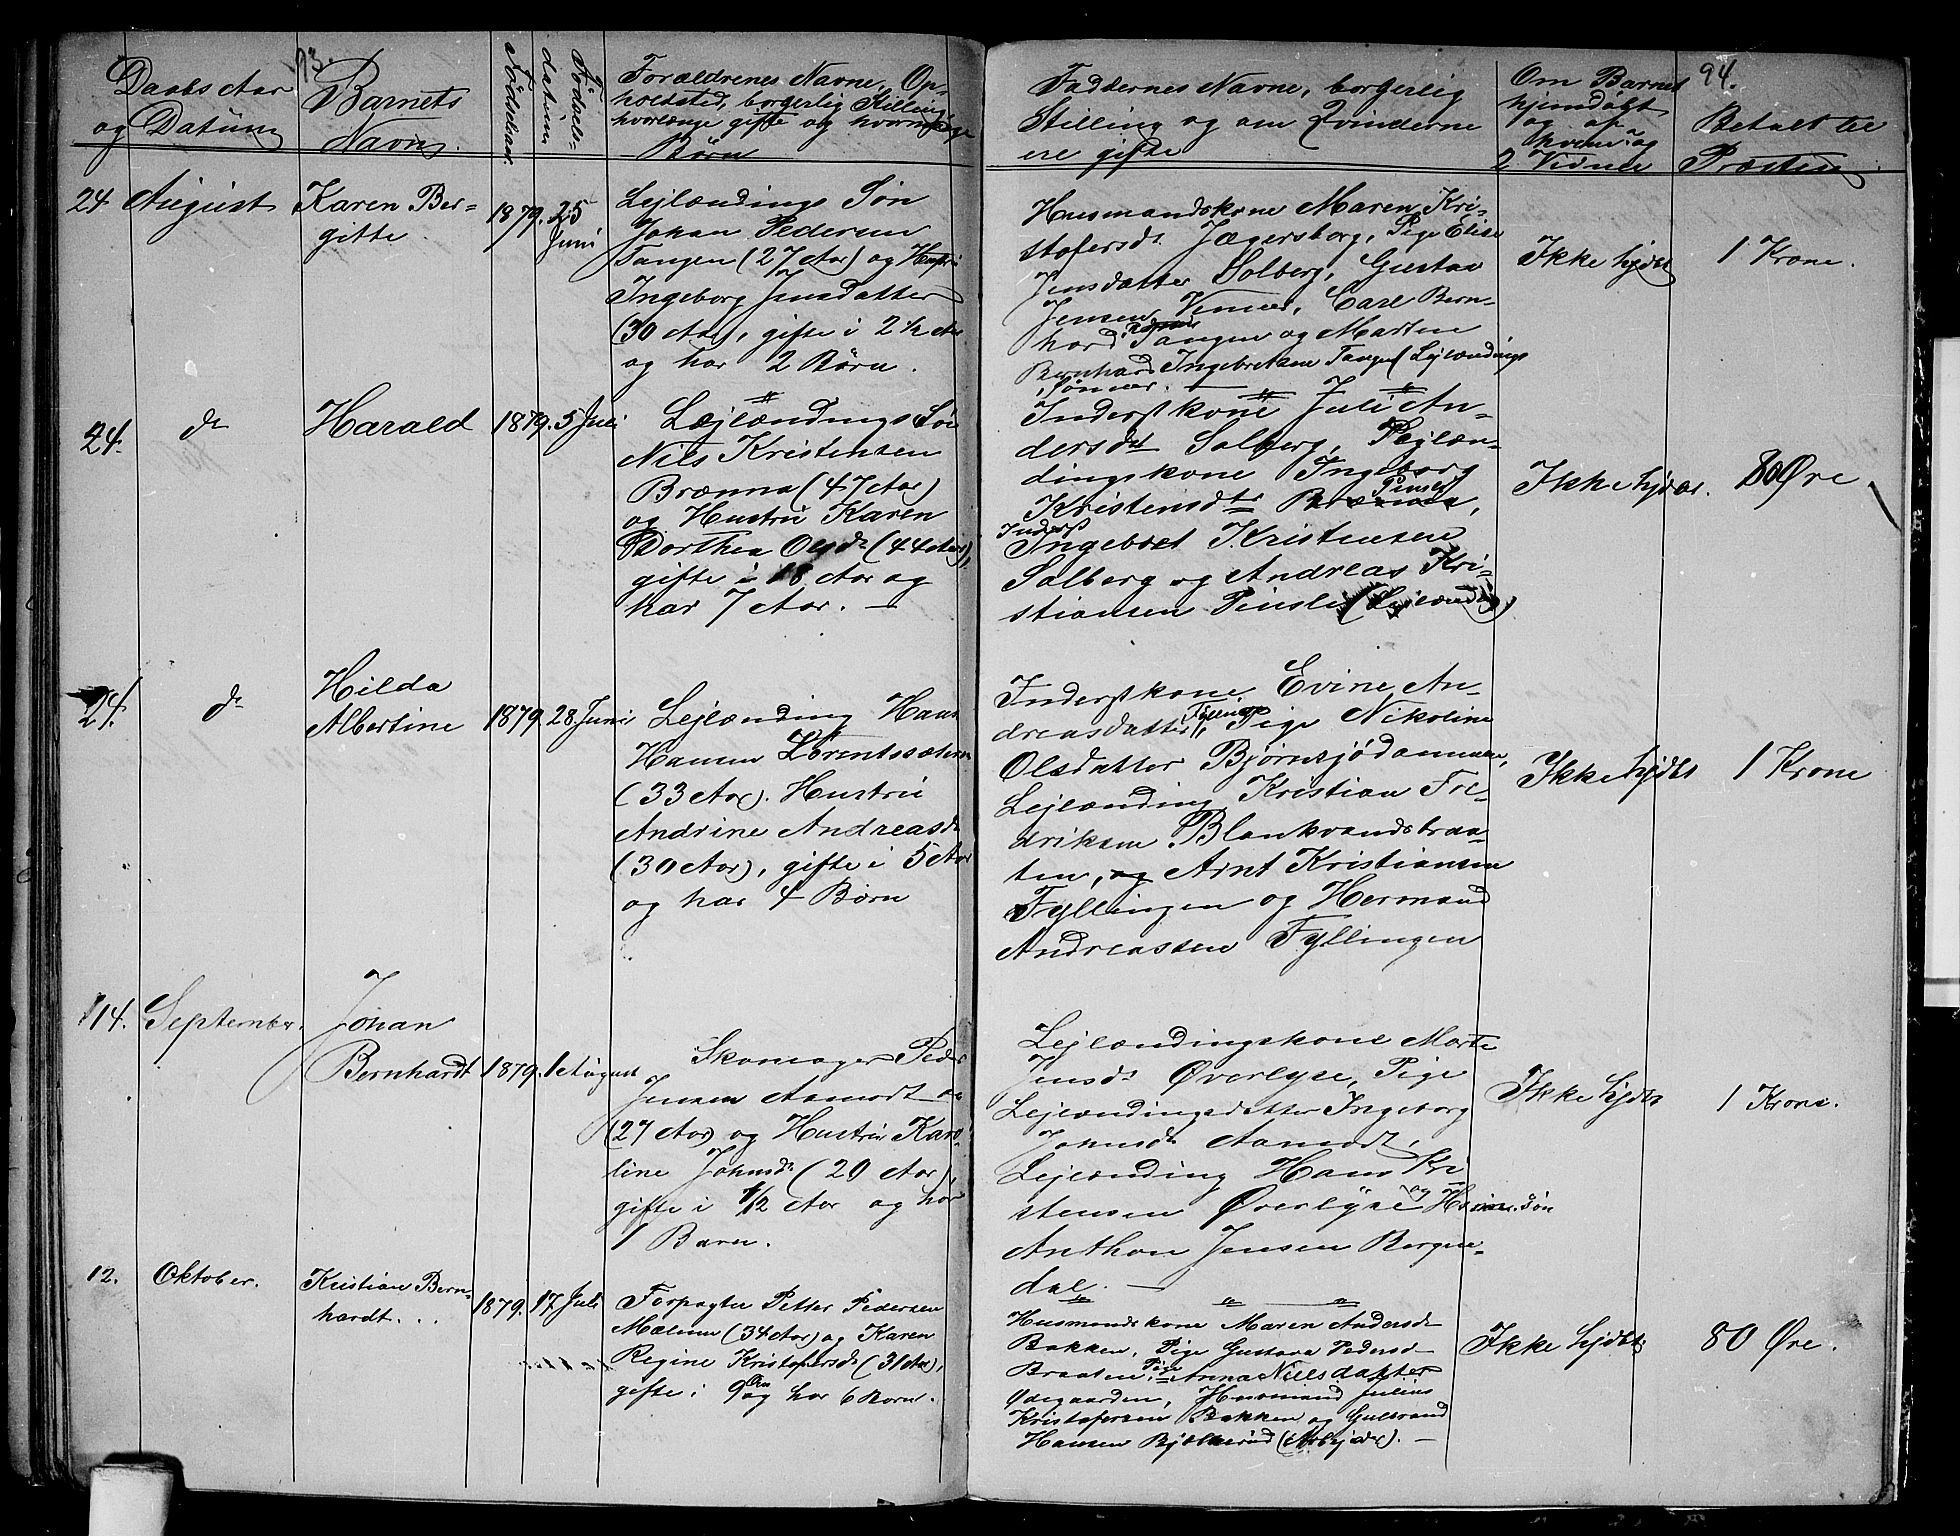 93.
Daabs Aar
og Datum
Barnets
Navn.
Fødselsaar.
Fødsels-
datum
Forældrenes Navne, Op-
holdsted, borgerlig Stilling
hvorlænge gifte og hvormange
Børn
24 August
Karen Ber-
gitte
1879.
25
Juni
Lejlændings Søn
Johan Pedersen
Tangen (27 Aar) og Hustru
Ingeborg Jensdatter
(30 Aar), gifte i 2 1/2 Aar
og har 2 Børn.
24. do
Harald
1879. 5 Juli
Lejlændings Søn
Niels Kristensen
Brænna (47 Aar)
og Hustru Karen
Dorthea Olsdr (44 Aar),
gifte i 18 Aar og
har 7 Aar. —
24. do
Hilda
Albertine
1879. 28. Juni
Lejlænding Hans
Hansen Lørentssæteren
(33 Aar). Hustru
Andrine Andreasdr
(30 Aar), gifte i 5 Aar
og har 4 Børn
14. September.
Johan
Bernhardt
1879. 1 August
Skomager Peder
Jensen Aamodt
(27 Aar) og Hustru Karo-
line Johnsdr (20 Aar),
gifte i 1/2 Aar og har
1 Barn.
12. Oktober.
Kristian Bern-
hardt. . .
1879. 17 Juli
Forpagter Petter Pedersen
Mælum (34 Aar) og Karen
Regine Kristofersdr (31 Aar),
gifte i 9 Aar og har 6 Børn.
94.
Faddernes Navne, borgerlig
Stilling og om Qvinderne
ere gifte
Om Barnet
hjemdøbt
og af
hvem og
2 Vidner
Betalt til
Præsten
Husmandskone Maren Kri-
stofersdr Jægersborg, Pige Elise
Jensdatter Solberg, Gustav
Jensen, Carl Bern-
hard Tangen og Marten
Bernhard Ingebretsen Tangen (Lejlændings
Sønner. —
Ikke hjdbt
1 Krone.
Inderstkone Juli An-
dersdt Solberg, Lejlæn-
dingskone Ingeborg
Kristensdtr Pinsle,
Inderst
Ingebret Kristensen
Solberg og Andreas Kri-
stiansen Pinsle (Lejlænding)
Ikke hjdbt.
80 Øre.
Inderstkone, Evine An-
dreasdatter Fyllingen, Pige Nikoline
Olsdatter Bjørnsjødammen,
Lejlænding Kristian Fre-
driksen Blankvandsbraa-
ten, og Arnt Kristiansen
Fyllingen og Hermand
Andreassen Fyllingen
Ikke hjdbt
1 Krone
Lejlændingskone Marte
Jensdr Øverlyse, Pige
Lejlændingsdatter Ingeborg
Johnsdr Aamodt,
Lejlænding Hans Kri-
stensen Øverlyse og Husm. Søn
Anthon Jensen Bergen-
dal. —
Ikke hjdbt
1 Krone.
Husmandskone Maren Andersdr
Bakken, Pige Gustava Pedersd
Braaten, Pige Anna Nielsdatter
Ødegaarden, Husmand Julius
Kristofersen Bakken og Gulbrand
Hansen Bjølkerud (Arbejder). —
Ikke hjdbt
80 Øre.